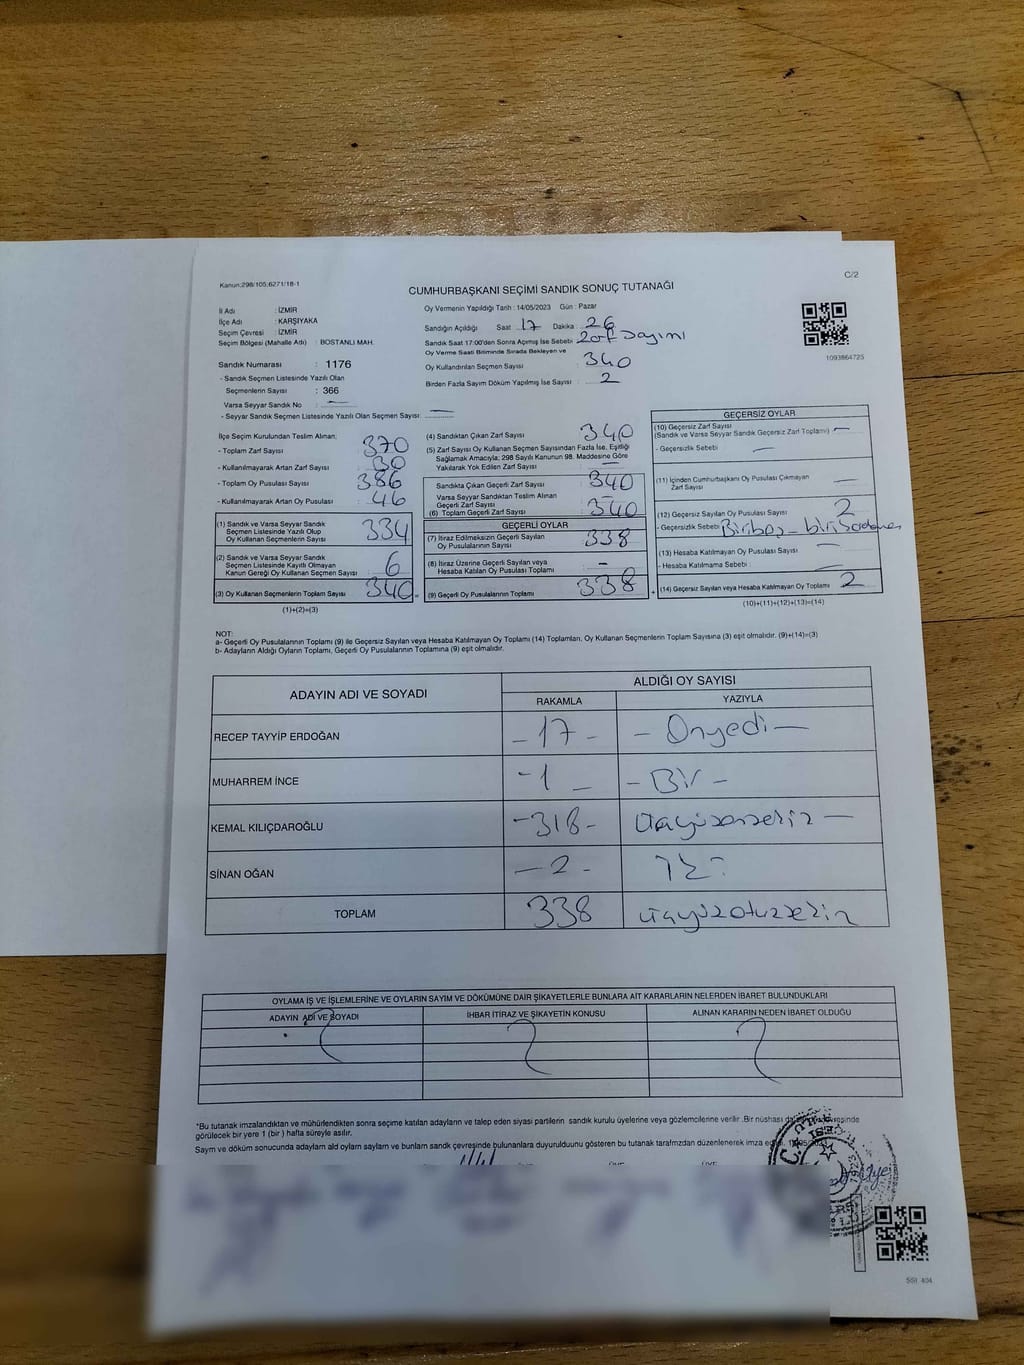 Kanun:298/105,6271/18-1
C/2
CUMHURBAŞKANI SEÇİMİ SANDIK SONUÇ TUTANAĞI
İl Adı : İZMİR
İlçe Adı : KARŞIYAKA
Seçim Çevresi : İZMİR
Seçim Bölgesi (Mahalle Adı) : BOSTANLI MAH.
Sandık Numarası : 1176
- Sandık Seçmen Listesinde Yazılı Olan
Seçmenlerin Sayısı : 366
Varsa Seyyar Sandık No : —
- Seyyar Sandık Seçmen Listesinde Yazılı Olan Seçmen Sayısı: —
Oy Vermenin Yapıldığı Tarih : 14/05/2023 Gün : Pazar
Sandığın Açıldığı Saat 17 Dakika 26
Sandık Saat 17:00'den Sonra Açılmış İse Sebebi : Zarf Sayımı
Oy Verme Saati Bitiminde Sırada Bekleyen ve
Oy Kullandırılan Seçmen Sayısı : 340
Birden Fazla Sayım Döküm Yapılmış İse Sayısı : 2
1093864725
İlçe Seçim Kurulundan Teslim Alınan;
- Toplam Zarf Sayısı 370
- Kullanılmayarak Artan Zarf Sayısı 30
- Toplam Oy Pusulası Sayısı 386
- Kullanılmayarak Artan Oy Pusulası 46
(1) Sandık ve Varsa Seyyar Sandık
Seçmen Listesinde Yazılı Olup
Oy Kullanan Seçmenlerin Sayısı 334
(2) Sandık ve Varsa Seyyar Sandık
Seçmen Listesinde Kayıtlı Olmayan
Kanun Gereği Oy Kullanan Seçmen Sayısı 6
(3) Oy Kullanan Seçmenlerin Toplam Sayısı 340
(1)+(2)=(3)
(4) Sandıktan Çıkan Zarf Sayısı 340
(5) Zarf Sayısı Oy Kullanan Seçmen Sayısından Fazla İse, Eşitliği
Sağlamak Amacıyla; 298 Sayılı Kanunun 98. Maddesine Göre
Yakılarak Yok Edilen Zarf Sayısı —
Sandıkta Çıkan Geçerli Zarf Sayısı 340
Varsa Seyyar Sandıktan Teslim Alınan
Geçerli Zarf Sayısı —
(6) Toplam Geçerli Zarf Sayısı 340
GEÇERLİ OYLAR
(7) İtiraz Edilmeksizin Geçerli Sayılan
Oy Pusulalarının Sayısı 338
(8) İtiraz Üzerine Geçerli Sayılan veya
Hesaba Katılan Oy Pusulası Toplamı —
(9) Geçerli Oy Pusulalarının Toplamı 338
GEÇERSİZ OYLAR
(10) Geçersiz Zarf Sayısı
(Sandık ve Varsa Seyyar Sandık Geçersiz Zarf Toplamı) —
- Geçersizlik Sebebi : —
(11) İçinden Cumhurbaşkanı Oy Pusulası Çıkmayan
Zarf Sayısı —
(12) Geçersiz Sayılan Oy Pusulası Sayısı 2
- Geçersizlik Sebebi : Biri boş - biri
(13) Hesaba Katılmayan Oy Pusulası Sayısı —
- Hesaba Katılmama Sebebi : —
(14) Geçersiz Sayılan veya Hesaba Katılmayan Oy Toplamı 2
(10)+(11)+(12)+(13)=(14)
NOT:
a- Geçerli Oy Pusulalarının Toplamı (9) ile Geçersiz Sayılan veya Hesaba Katılmayan Oy Toplamı (14) Toplamları, Oy Kullanan Seçmenlerin Toplam Sayısına (3) eşit olmalıdır. (9)+(14)=(3)
b- Adayların Aldığı Oyların Toplamı, Geçerli Oy Pusulalarının Toplamına (9) eşit olmalıdır.
ADAYIN ADI VE SOYADI ALDIĞI OY SAYISI
RAKAMLA YAZIYLA
RECEP TAYYİP ERDOĞAN - 17 - - Onyedi -
MUHARREM İNCE - 1 - - Bir -
KEMAL KILIÇDAROĞLU - 318 - üçyüzonsekiz -
SİNAN OĞAN - 2 - İki
TOPLAM 338 üçyüzotuzsekiz
OYLAMA İŞ VE İŞLEMLERİNE VE OYLARIN SAYIM VE DÖKÜMÜNE DAİR ŞİKAYETLERLE BUNLARA AİT KARARLARIN NELERDEN İBARET BULUNDUKLARI
ADAYIN ADI VE SOYADI İHBAR İTİRAZ VE ŞİKAYETİN KONUSU ALINAN KARARIN NEDEN İBARET OLDUĞU
*Bu tutanak imzalandıktan ve mühürlendikten sonra seçime katılan adayların ve talep eden siyasi partilerin sandık kurulu üyelerine veya gözlemcilerine verilir. Bir nüshası da
görülecek bir yere 1 (bir) hafta süreyle asılır.
Sayım ve döküm sonucunda adayların aldığı oyların sayılarını ve bunların sandık çevresinde bulunanlara duyurulduğunu gösteren bu tutanak tarafımızdan düzenlenerek imza